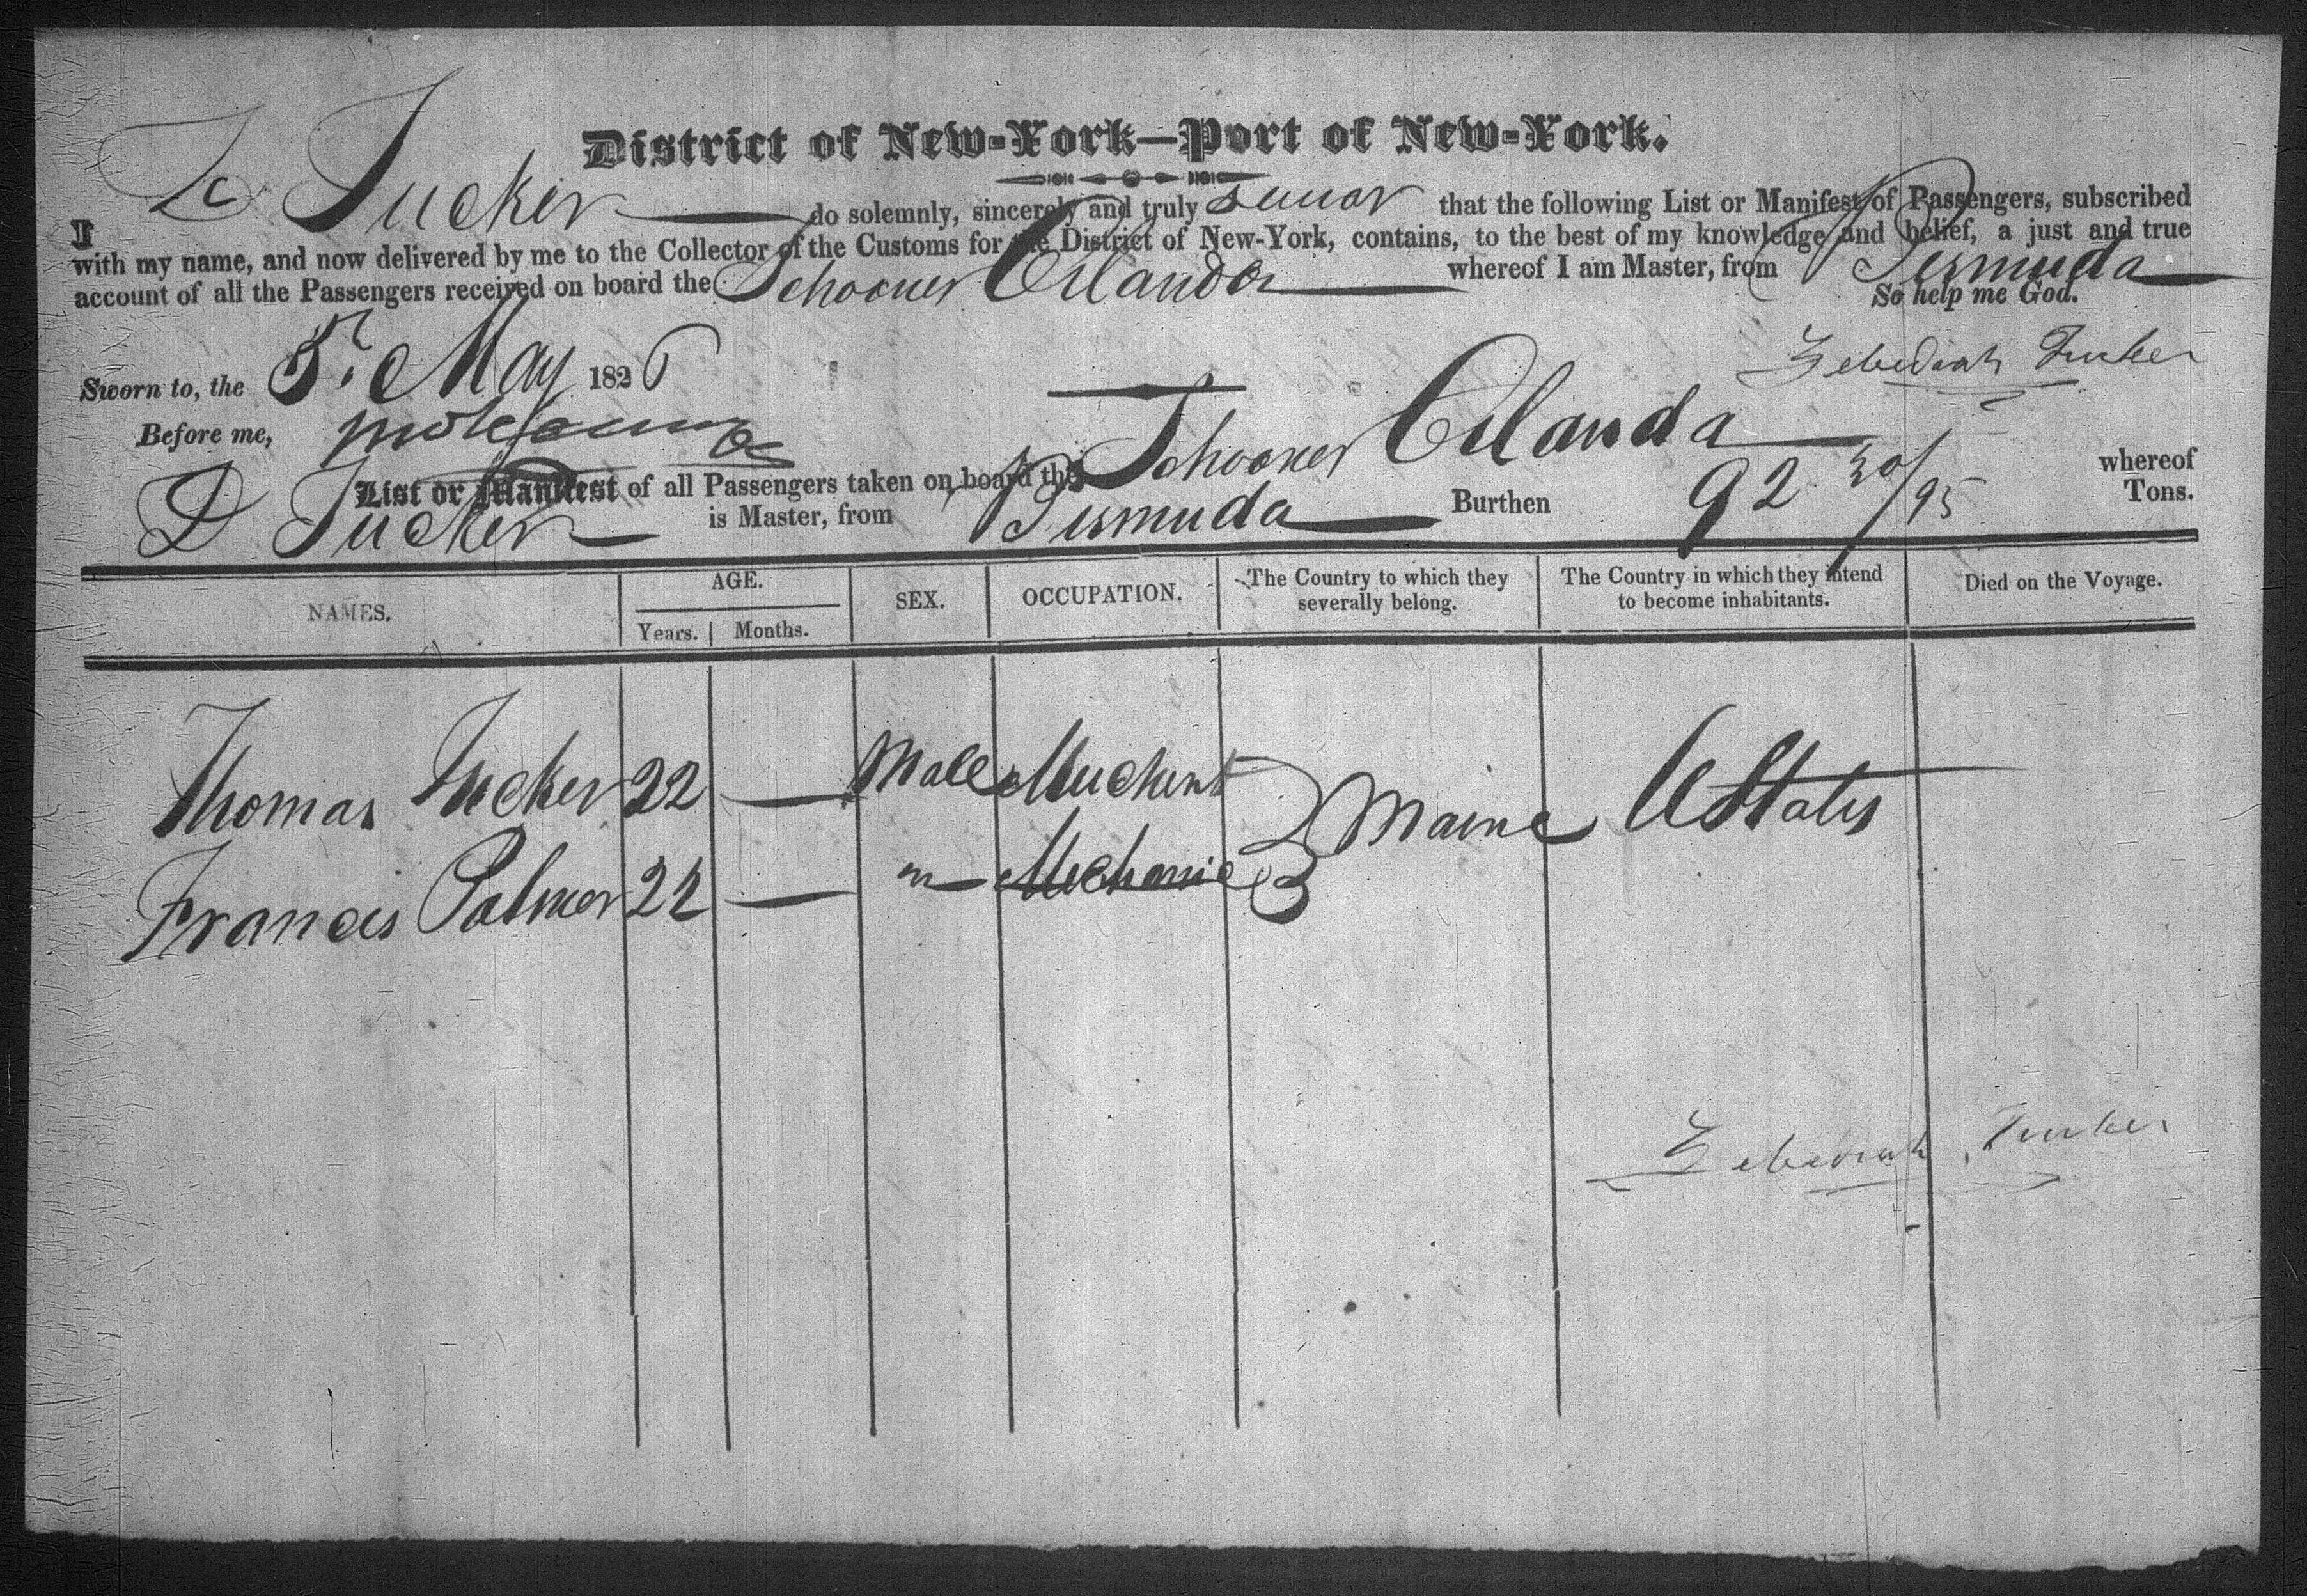 District of New-York—Port of New-York.
I Z Tucker do solemnly, sincerely and truly swear that the following List or Manifest of Passengers, subscribed
with my name, and now delivered by me to the Collector of the Customs for the District of New-York, contains, to the best of my knowledge and belief, a just and true
account of all the Passengers received on board the Schooner Orlando whereof I am Master, from Bermuda
So help me God.
Sworn to, the 5. May 1826
Zebediah Tucker
Before me,
List or Manifest of all Passengers taken on board the Schooner Orlanda whereof
Tucker is Master, from Bermuda Burthen 92 30/95 Tons.
NAMES. AGE. SEX. OCCUPATION. The Country to which they severally belong. The Country in which they intend to become inhabitants. Died on the Voyage.
Years. Months.
Thomas Tucker 22 — Male Maine UStates
Francis Palmer 22 — m Mechanic
Zebediah Tucker